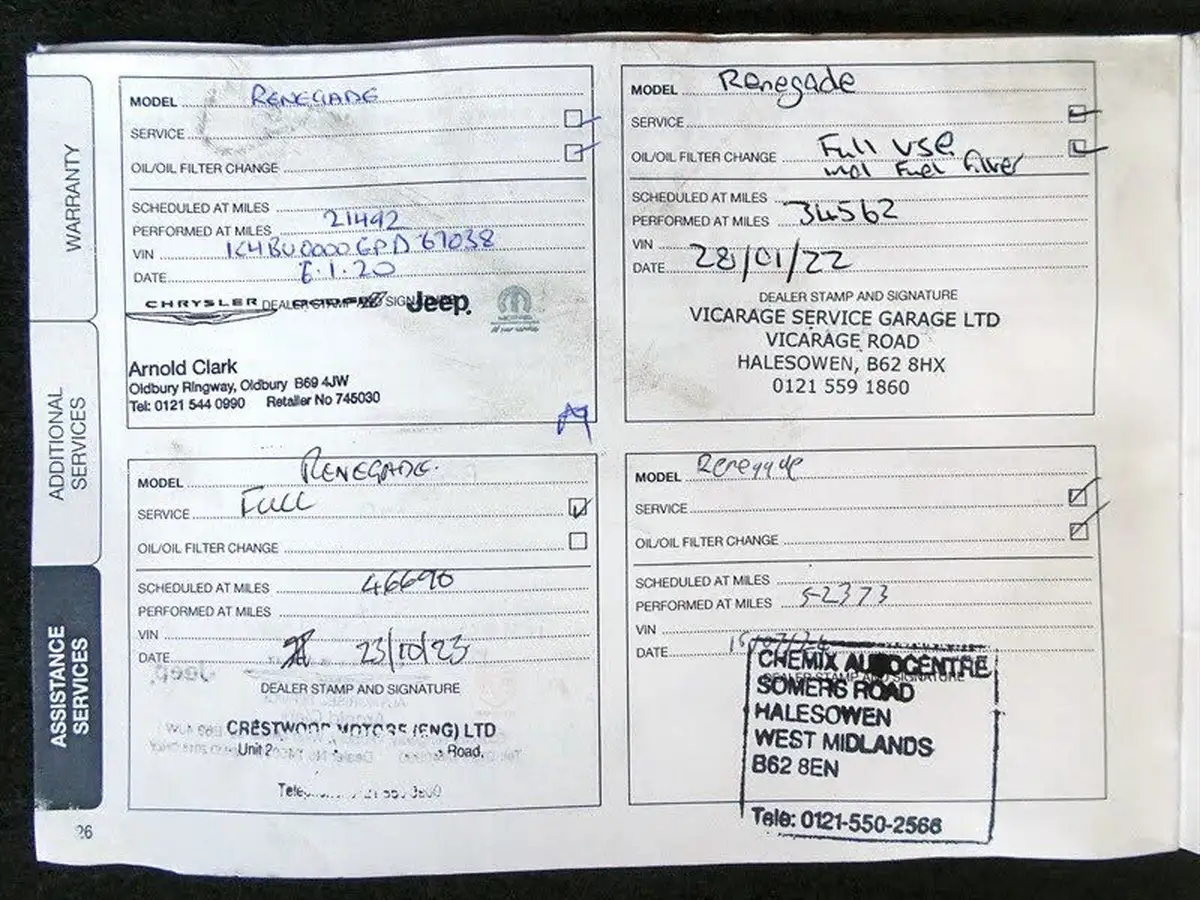 WARRANTY
ADDITIONAL
SERVICES
ASSISTANCE
SERVICES
26
MODEL RENEGADE
SERVICE
OIL/OIL FILTER CHANGE
SCHEDULED AT MILES
PERFORMED AT MILES 21492
VIN 1C4BU0000GPD67038
DATE 6.1.20
CHRYSLER DEALER STAMP AND SIGNATURE Jeep
Arnold Clark
Oldbury Ringway, Oldbury B69 4JW
Tel: 0121 544 0990 Retailer No 745030
MODEL Renegade
SERVICE
OIL/OIL FILTER CHANGE Full VSE
incl Fuel filter
SCHEDULED AT MILES
PERFORMED AT MILES 34562
VIN
DATE 28/01/22
DEALER STAMP AND SIGNATURE
VICARAGE SERVICE GARAGE LTD
VICARAGE ROAD
HALESOWEN, B62 8HX
0121 559 1860
MODEL RENEGADE.
SERVICE FULL
OIL/OIL FILTER CHANGE
SCHEDULED AT MILES 46690
PERFORMED AT MILES
VIN
DATE 23/10/23
DEALER STAMP AND SIGNATURE
CRESTWOOD MOTORS (ENG) LTD
Unit 2 Road,
MODEL Renegade
SERVICE
OIL/OIL FILTER CHANGE
SCHEDULED AT MILES
PERFORMED AT MILES 52373
VIN
DATE
DEALER STAMP AND SIGNATURE
CHEMIX AUTOCENTRE
SOMERS ROAD
HALESOWEN
WEST MIDLANDS
B62 8EN
Tele: 0121-550-2566